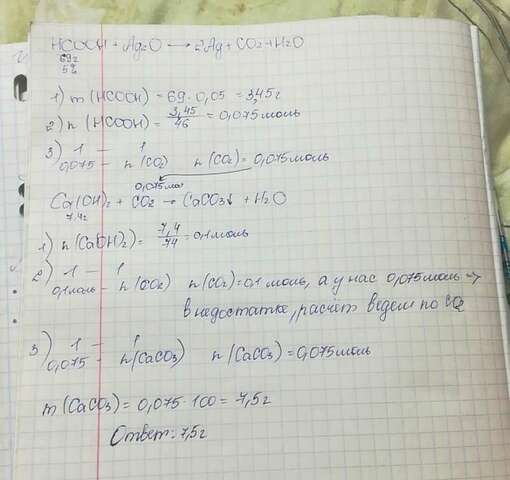 HCOOH + Ag₂O → 2Ag + CO₂ + H₂O
69г
5%
1) m (HCOOH) = 69 · 0,05 = 3,45г
2) n (HCOOH) = 3,45/46 = 0,075 моль
3) 1 — 1
0,075 - n(CO₂) n(CO₂) = 0,075 моль
0,075 мол
Ca(OH)₂ + CO₂ → CaCO₃↓ + H₂O
7,4г
1) n (Ca(OH)₂) = 7,4/74 = 0,1 моль
2) 1 — 1
0,1 моль - n(CO₂) n(CO₂) = 0,1 моль, а у нас 0,075 моль →
в недостатке, расчёт ведем по CO₂
3) 1 — 1
0,075 - n(CaCO₃) n(CaCO₃) = 0,075 моль
m (CaCO₃) = 0,075 · 100 = 7,5г
Ответ: 7,5г